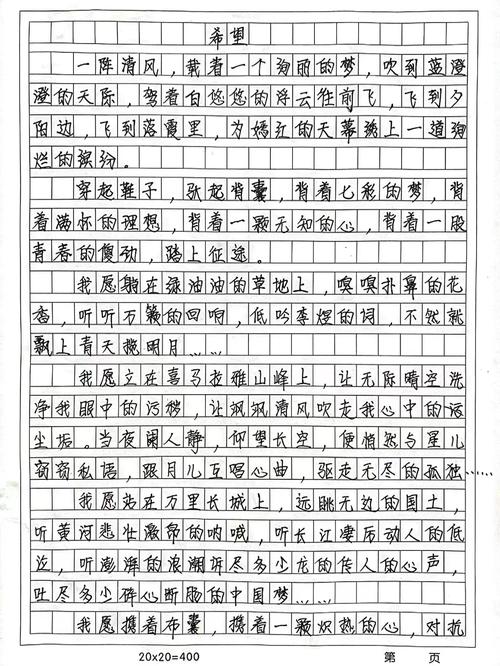 希望
一阵清风，载着一个绚丽的梦，吹到蓝澄
澄的天际，驾着白悠悠的浮云往前飞，飞到夕
阳边，飞到落霞里，为嫣红的天幕绣上一道绚
烂的缤纷。
穿起鞋子，张起背囊，背着七彩的梦，背
着满怀的理想，背着一颗无知的心，背着一股
青春的傻动，踏上征途。
我愿躺在绿油油的草地上，嗅嗅扑鼻的花
香，听听万籁的回响，低吟李煜的词，不然就
飘上青天揽明月……
我愿立在喜马拉雅山峰上，让无际晴空洗
净我眼中的污秽，让飒飒清风吹走我心中的污
尘垢。当夜阑人静，仰望长空，便悄然与星儿
窃窃私语，跟月儿互唱心曲，驱走无尽的孤独……
我愿站在万里长城上，远眺无边的国土，
听黄河悲壮激昂的呐喊，听长江凄厉动人的低
泣，听澎湃的浪潮诉尽多少龙的传人的心声，
吐尽多少碎心断肠的中国梦……
我愿携着布囊，携着一颗炽热的心，对抗
20x20=400 第 页